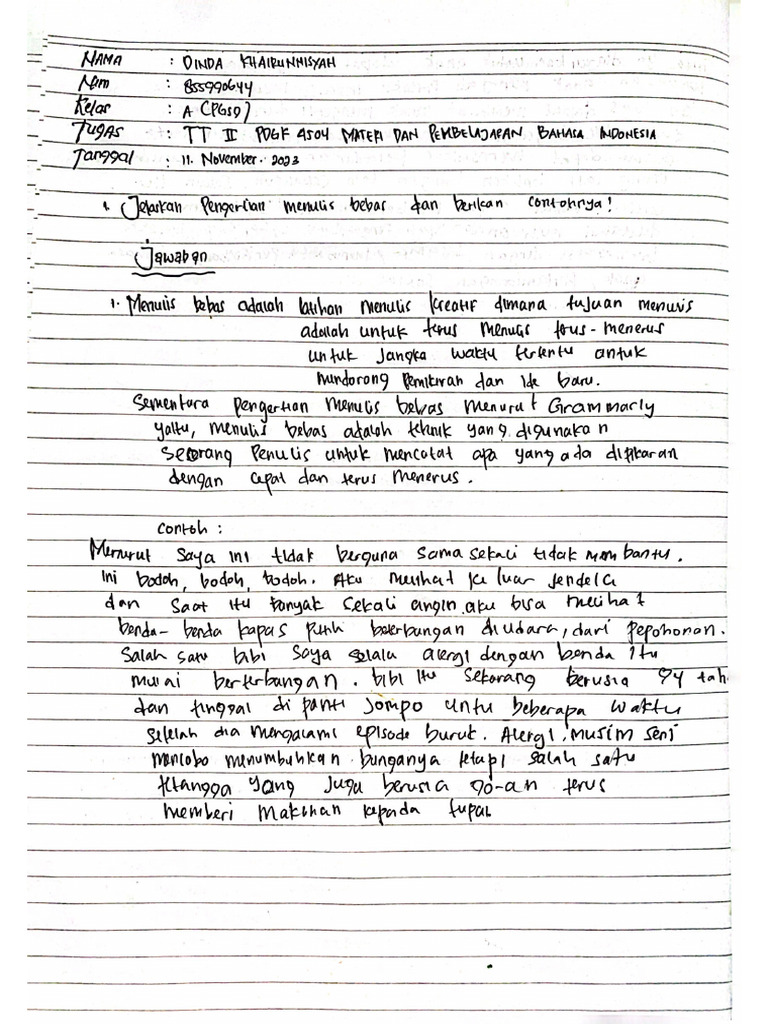 NAMA : DINDA KHAIRUNNISYAH
Nim : 855990644
Kelas : A (PGSD)
Tugas : TT II PDGK 4504 MATERI DAN PEMBELAJARAN BAHASA INDONESIA
Tanggal : 11. November. 2023
1. Jelaskan Pengertian menulis bebas dan berikan contohnya!
Jawaban
1. Menulis bebas adalah latihan menulis kreatif dimana tujuan menulis
adalah untuk terus menulis terus-menerus
untuk jangka waktu tertentu untuk
mendorong pemikiran dan ide baru.
Sementara pengertian menulis bebas menurut Grammarly
yaitu, menulis bebas adalah teknik yang digunakan
seorang penulis untuk mencatat apa yang ada dipikaran
dengan cepat dan terus menerus.
contoh :
Menurut saya ini tidak berguna sama sekali tidak membantu.
Ini bodoh, bodoh, bodoh. Aku melihat ke luar jendela
dan saat itu banyak sekali angin, aku bisa melihat
benda-benda kapas putih beterbangan diudara, dari pepohonan.
Salah satu bibi saya selalu alergi dengan benda itu
mulai berterbangan. bibi itu sekarang berusia 94 tah
dan tinggal di panti jompo untu beberapa waktu
setelah dia mengalami episode buruk. Alergi, musim seni
mencoba menumbuhkan bunganya tetapi salah satu
tetangga yang juga berusia 90-an terus
memberi makanan kepada tupai